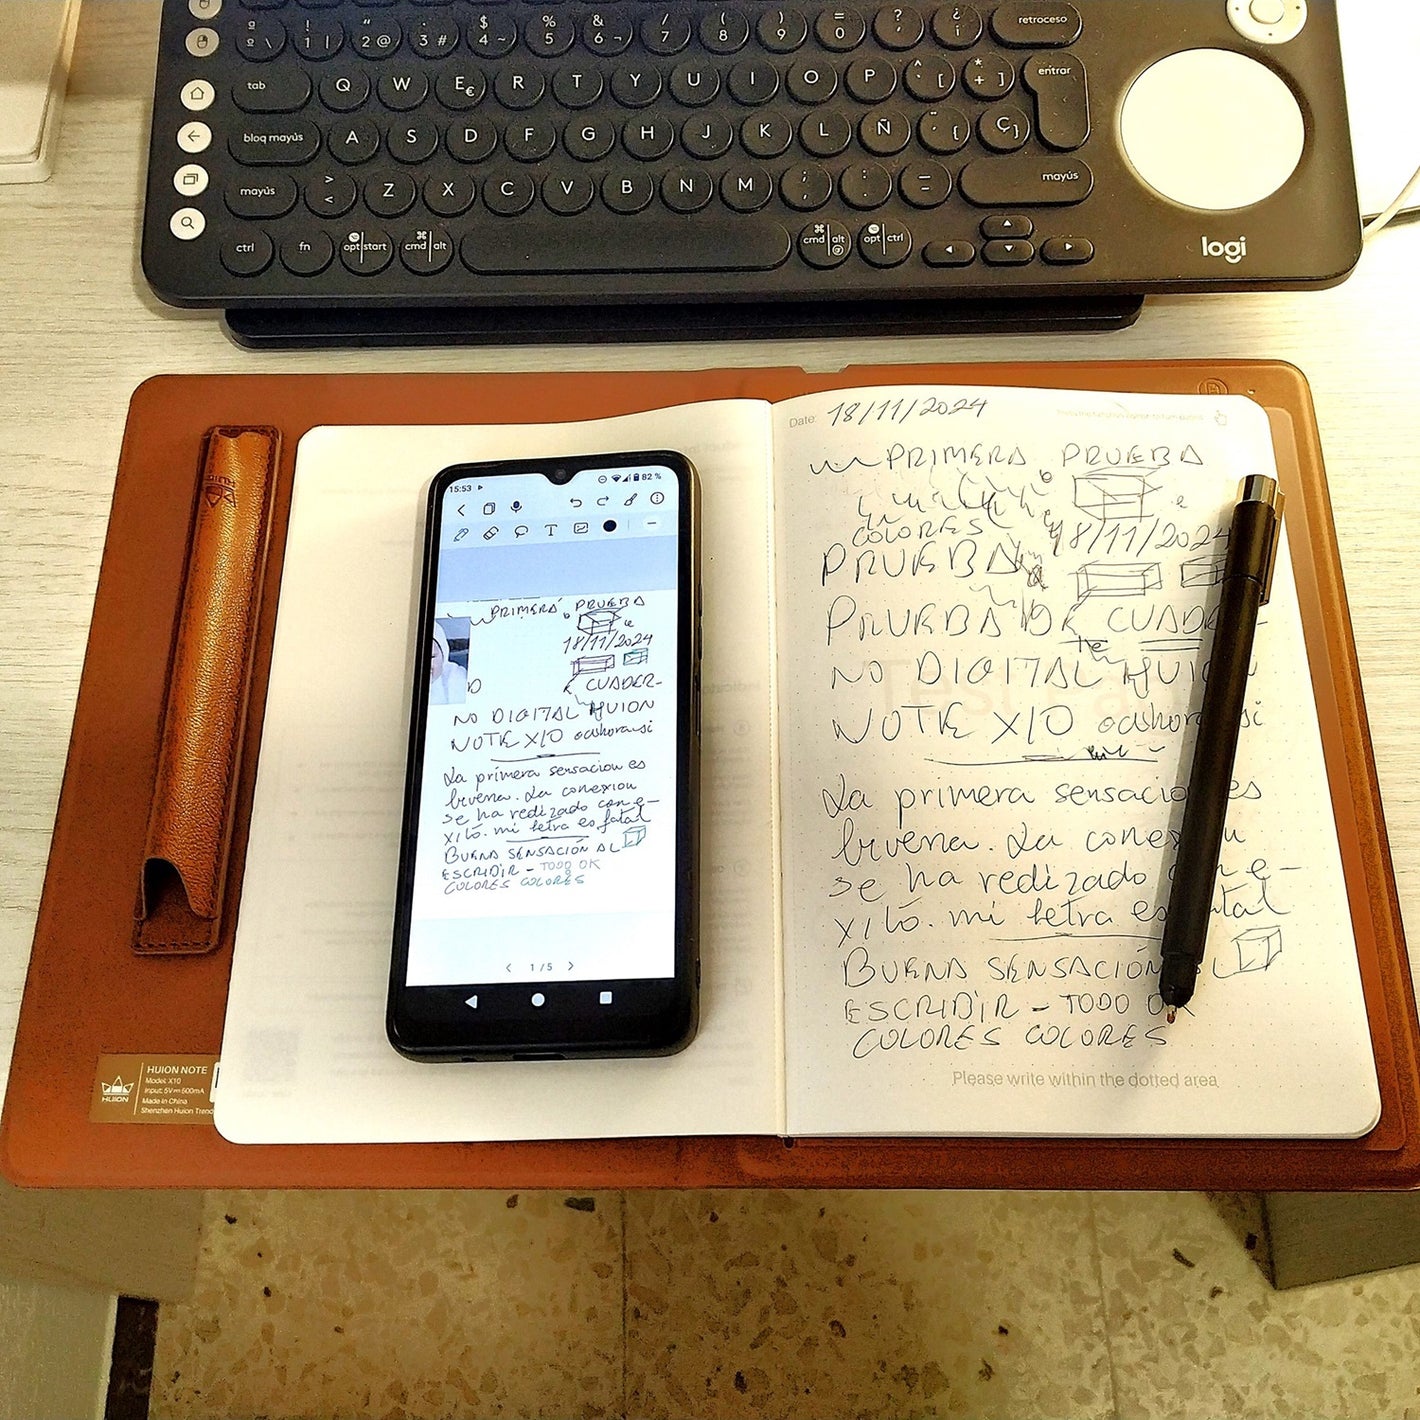 retroceso
tab Q W E € R T Y U I O P entrar
bloq mayús A S D F G H J K L Ñ Ç
mayús > < Z X C V B N M mayús
ctrl fn opt start cmd alt cmd alt opt ctrl
logi
Date: 18/11/2024
PRIMERA PRUEBA
COLORES 18/11/2024
PRUEBA
PRUEBA DE CUADER-
NO DIGITAL HUION
NOTE X10
La primera sensacion es
buena. La conexion
se ha redizado con e-
xito. mi letra es fatal
BUENA SENSACIÓN AL
ESCRIDIR - TODO OK
COLORES COLORES
Please write within the dotted area
15:53 82 %
T
PRIMERA PRUEBA
18/11/2024
CUADER-
NO DIGITAL HUION
NOTE X10
La primera sensacion es
buena. La conexion
se ha redizado con e-
xito. mi letra es fatal
BUENA SENSACIÓN AL
ESCRIDIR - TODO OK
COLORES COLORES
< 1/5 >
HUION
HUION NOTE
Model: X10
Input: 5V⎓500mA
Made in China
Shenzhen Huion Trend